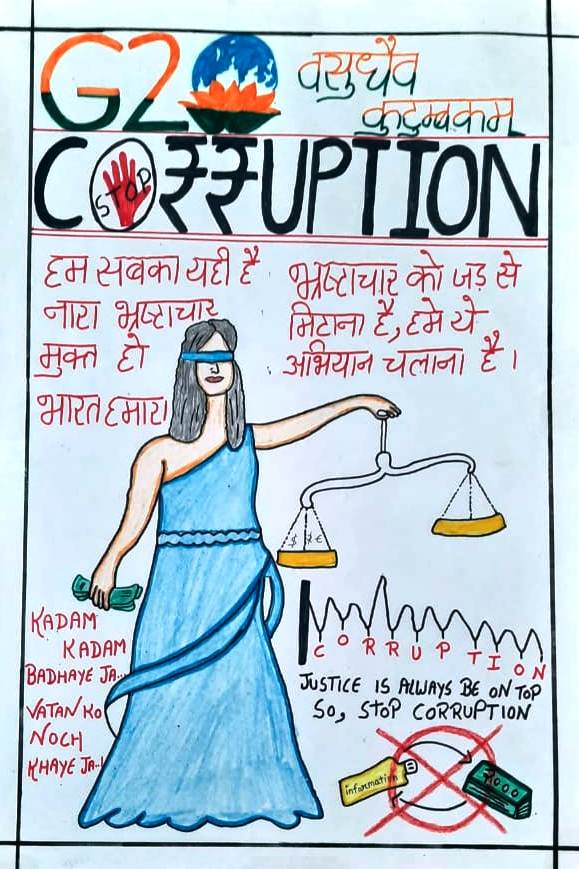 G20
वसुधैव
कुटुम्बकम्
CORRUPTION
STOP
हम सबका यही है
नारा भ्रष्टाचार
मुक्त हो
भारत हमारा
भ्रष्टाचार को जड़ से
मिटाना है, हमे ये
अभियान चलाना है।
$ ₹ €
KADAM
KADAM
BADHAYE JA...
VATAN KO
NOCH
KHAYE JA..!
CORRUPTION
JUSTICE IS ALWAYS BE ON TOP
SO, STOP CORRUPTION
information